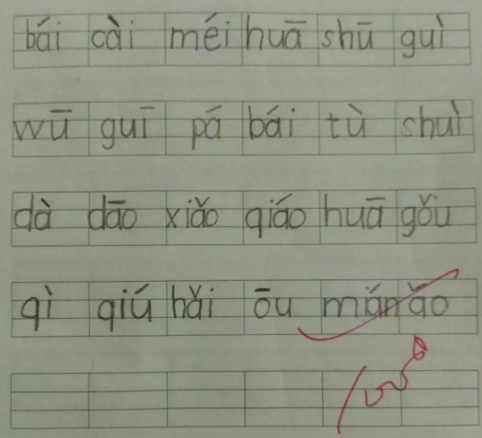 bái cài méi huā shū guì
wū guī pá bái tù shuì
dà dāo xiǎo qiáo huā gǒu
qì qiú hǎi ōu mán ǎo
100